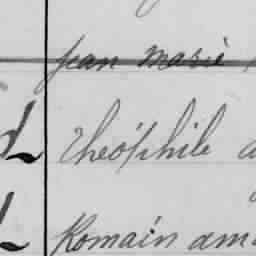 Jean Marie
Théophile a
Romain am